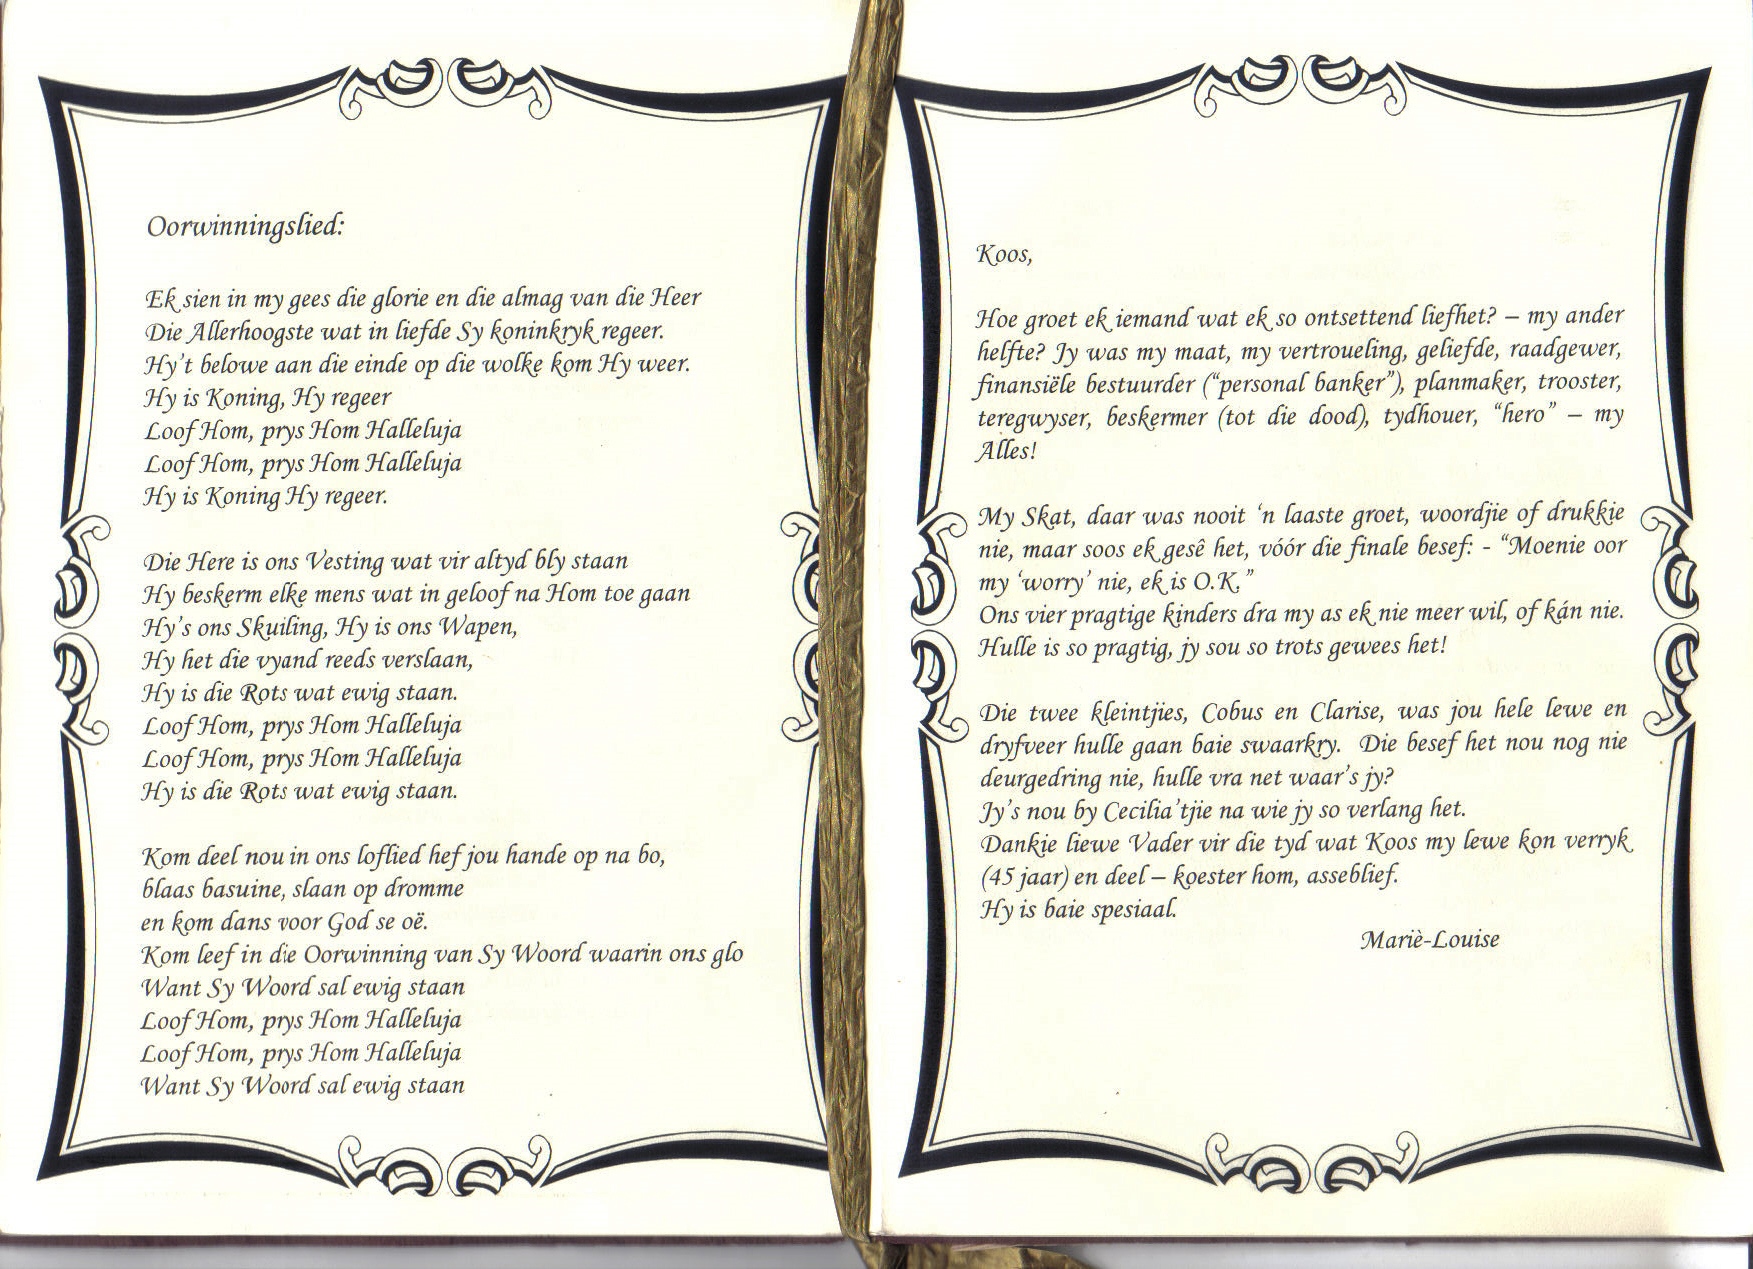 Oorwinningslied:
Ek sien in my gees die glorie en die almag van die Heer
Die Allerhoogste wat in liefde Sy koninkryk regeer.
Hy't belowe aan die einde op die wolke kom Hy weer.
Hy is Koning, Hy regeer
Loof Hom, prys Hom Halleluja
Loof Hom, prys Hom Halleluja
Hy is Koning Hy regeer.
Die Here is ons Vesting wat vir altyd bly staan
Hy beskerm elke mens wat in geloof na Hom toe gaan
Hy's ons Skuiling, Hy is ons Wapen,
Hy het die vyand reeds verslaan,
Hy is die Rots wat ewig staan.
Loof Hom, prys Hom Halleluja
Loof Hom, prys Hom Halleluja
Hy is die Rots wat ewig staan.
Kom deel nou in ons loflied hef jou hande op na bo,
blaas basuine, slaan op dromme
en kom dans voor God se oë.
Kom leef in die Oorwinning van Sy Woord waarin ons glo
Want Sy Woord sal ewig staan
Loof Hom, prys Hom Halleluja
Loof Hom, prys Hom Halleluja
Want Sy Woord sal ewig staan
Koos,
Hoe groet ek iemand wat ek so ontsettend liefhet? – my ander
helfte? Jy was my maat, my vertroueling, geliefde, raadgewer,
finansiële bestuurder (“personal banker”), planmaker, trooster,
teregwyser, beskermer (tot die dood), tydhouer, “hero” – my
Alles!
My Skat, daar was nooit ‘n laaste groet, woordjie of drukkie
nie, maar soos ek gesê het, vóór die finale besef: - “Moenie oor
my ‘worry’ nie, ek is O.K.”
Ons vier pragtige kinders dra my as ek nie meer wil, of kán nie.
Hulle is so pragtig, jy sou so trots gewees het!
Die twee kleintjies, Cobus en Clarise, was jou hele lewe en
dryfveer hulle gaan baie swaarkry. Die besef het nou nog nie
deurgedring nie, hulle vra net waar's jy?
Jy's nou by Cecilia'tjie na wie jy so verlang het.
Dankie liewe Vader vir die tyd wat Koos my lewe kon verryk
(45 jaar) en deel – koester hom, asseblief.
Hy is baie spesiaal.
Mariè-Louise